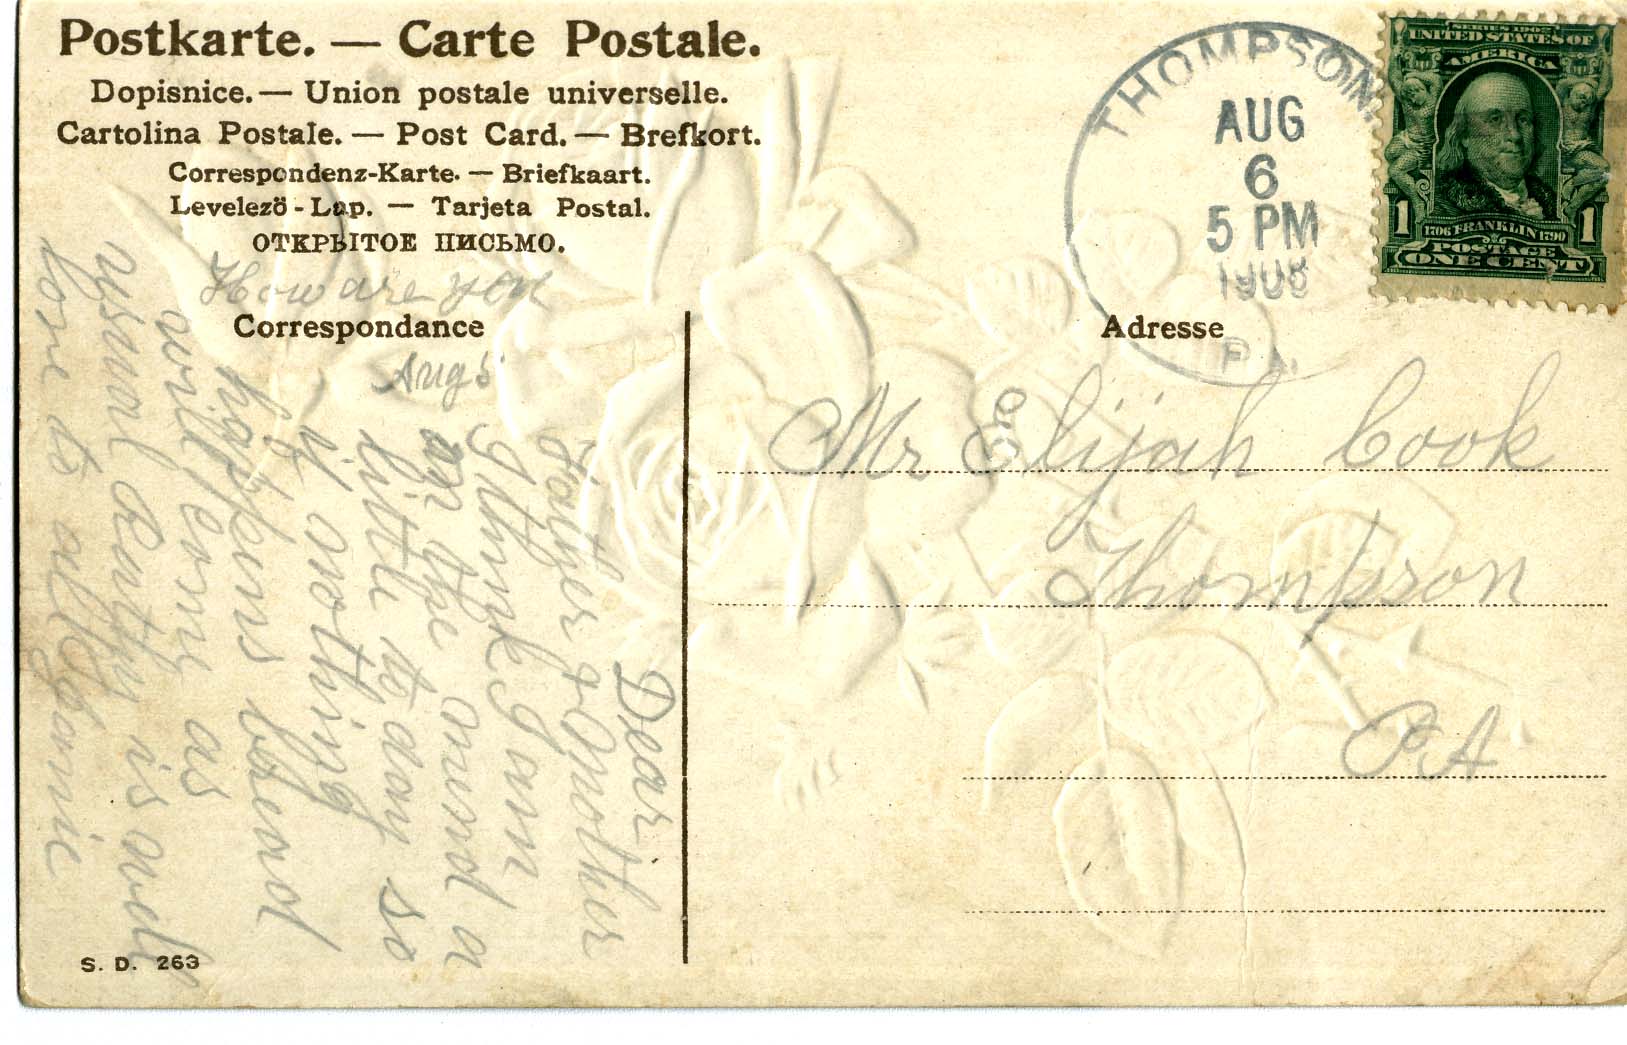 Postkarte. — Carte Postale.
Dopisnice. — Union postale universelle.
Cartolina Postale. — Post Card. — Brefkort.
Correspondenz-Karte. — Briefkaart.
Levelező-Lap. — Tarjeta Postal.
ОТКРЫТОЕ ПИСЬМО.
How are you
Correspondance
Aug 5
Dear
Father & Mother
I think I am
on the mend a
little to day so
if nothing
happens
will come as
is
love to all
S. D. 263
THOMPSON,
AUG
6
5 PM
1908
PA.
SERIES 1902
UNITED STATES OF
AMERICA
1 1706 FRANKLIN 1790 1
POSTAGE
ONE CENT
Adresse
Mr Elijah Cook
Thompson
PA